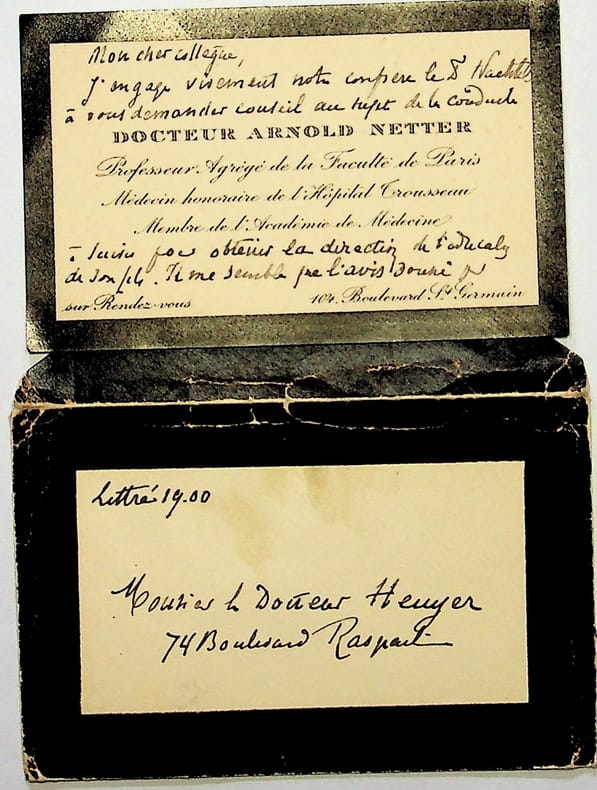 Mon cher collègue,
J'engage vivement notre confrère le Dr
à vous demander conseil au sujet de la conduite
DOCTEUR ARNOLD NETTER
Professeur Agrégé de la Faculté de Paris
Médecin honoraire de l'Hôpital Trousseau
Membre de l'Académie de Médecine
à suivre pour obtenir la direction de l'
de son fils. Il me semble que l'avis donné par
sur Rendez-vous 104, Boulevard St Germain
Littré 19.00
Monsieur le Docteur Heuyer
74 Boulevard Raspail